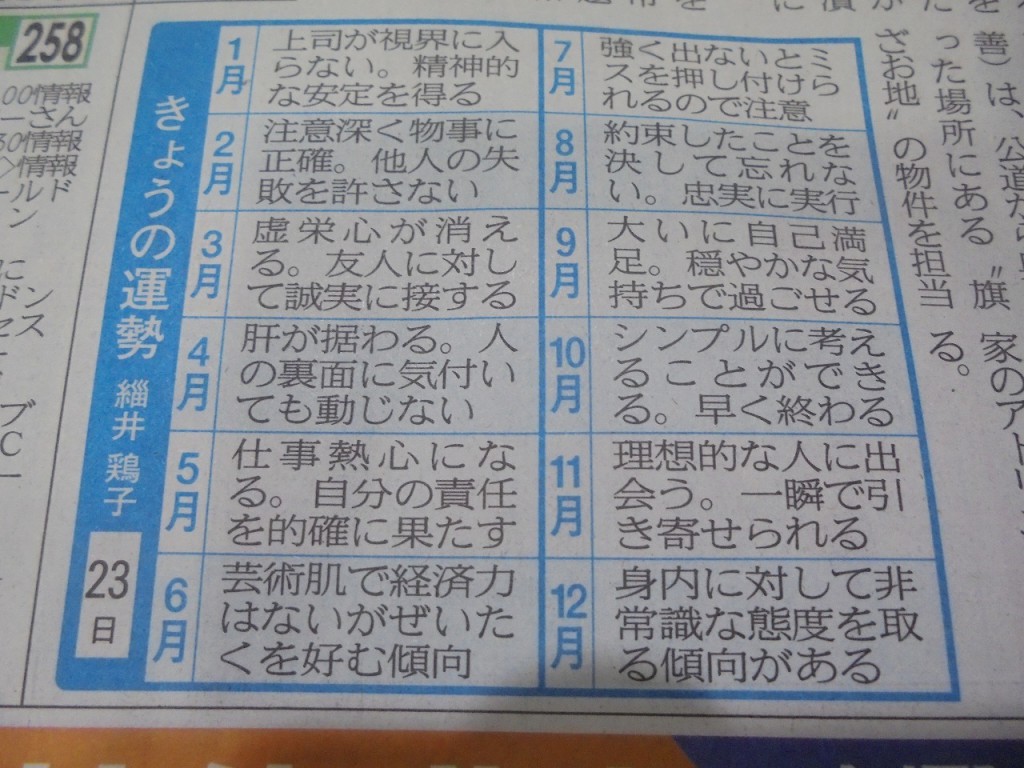 258
00情報
ーさん
30情報
情報
ールド
ン
きょうの運勢
緇井 鶏子
23
日
1月
上司が視界に入
らない。精神的
な安定を得る
2月
注意深く物事に
正確。他人の失
敗を許さない
3月
虚栄心が消え
る。友人に対し
て誠実に接する
4月
肝が据わる。人
の裏面に気付い
ても動じない
5月
仕事熱心にな
る。自分の責任
を的確に果たす
6月
芸術肌で経済力
はないがぜいた
くを好む傾向
7月
強く出ないとミ
スを押し付けら
れるので注意
8月
約束したことを
決して忘れな
い。忠実に実行
9月
大いに自己満
足。穏やかな気
持ちで過ごせる
10月
シンプルに考え
ることができ
る。早く終わる
11月
理想的な人に出
会う。一瞬で引
き寄せられる
12月
身内に対して非
常識な態度を取
る傾向がある
善)は、公道から
った場所にある〝旗
ざお地〟の物件を担当
る。
家のアト